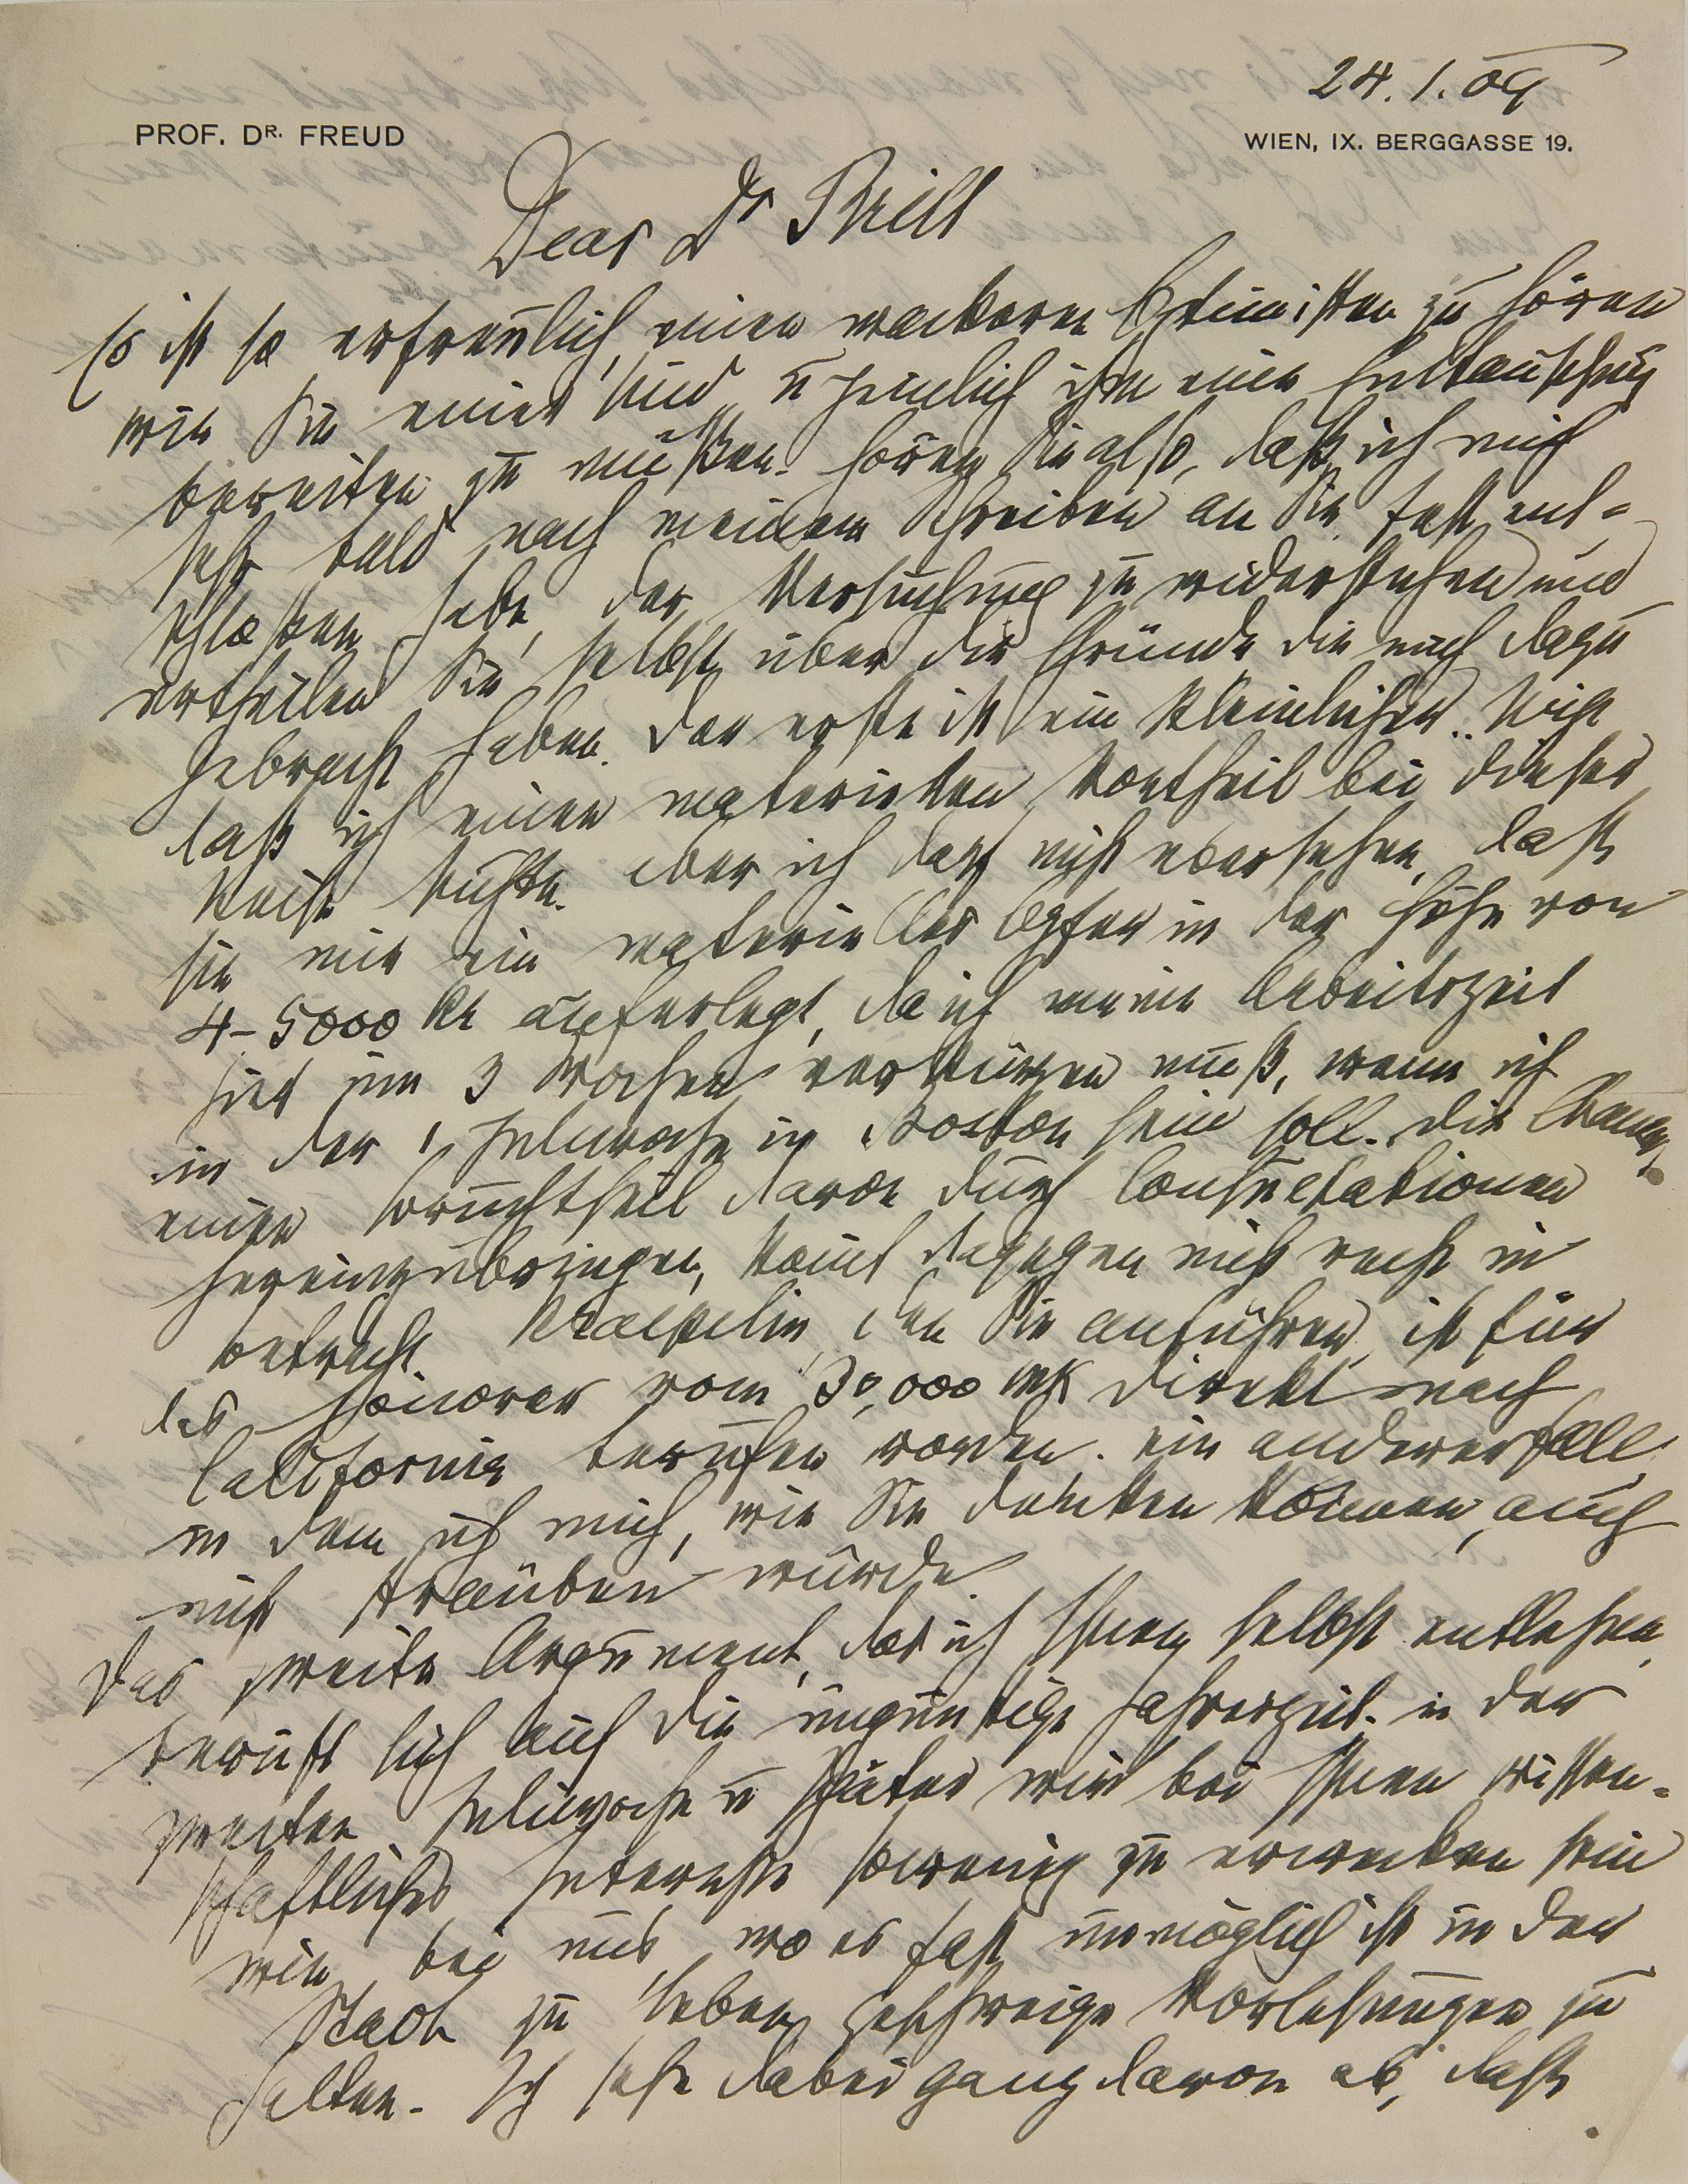 24. 1. 09
PROF. DR. FREUD
WIEN, IX. BERGGASSE 19.
Dear Dr Brill
Es ist so erfreulich, einen wackeren Optimisten zu hören
wie Sie einer sind u peinlich ihm eine Enttäuschung
bereiten zu müßen. Hören Sie also, daß ich mich
sehr bald nach meinem Schreiben an Sie fest ent-
schloßen habe, der Versuchung zu widerstehen und
urtheilen Sie selbst über die Gründe die mich dazu
gebracht haben. Der erste ist ein kleinlicher. Nicht
daß ich einen materiellen Vortheil bei dieser
Reise suchte. aber ich darf nicht übersehen, daß
sie mir ein materielles Opfer in der Höhe von
4–5000 Kr auferlegt, da ich meine Arbeitszeit
hier um 3 Wochen verkürzen muß, wenn ich
in der 1 Juliwoche in Boston sein soll. Die Chance,
einen Bruchtheil davon durch Consultationen
hereinzubringen, kommt dagegen nicht recht in
betracht. Kraepelin, den Sie anführen, ist für
das Honorar von 30,000 Mk direkt nach
California berufen worden. ein anderer Fall
in dem ich mich, wie Sie denken können, auch
nicht sträuben würde.
Das zweite Argument, das ich Ihnen selbst entlehne,
beruft sich auf die ungünstige Jahreszeit. in der
zweiten Juliwoche u später wird bei Ihnen wissen-
schaftliches Interesse sowenig zu erwecken sein
wie bei uns, wo es fast unmöglich ist in der
Stadt zu leben, geschweige Vorlesungen zu
halten. Ich sehe dabei ganz davon ab, daß